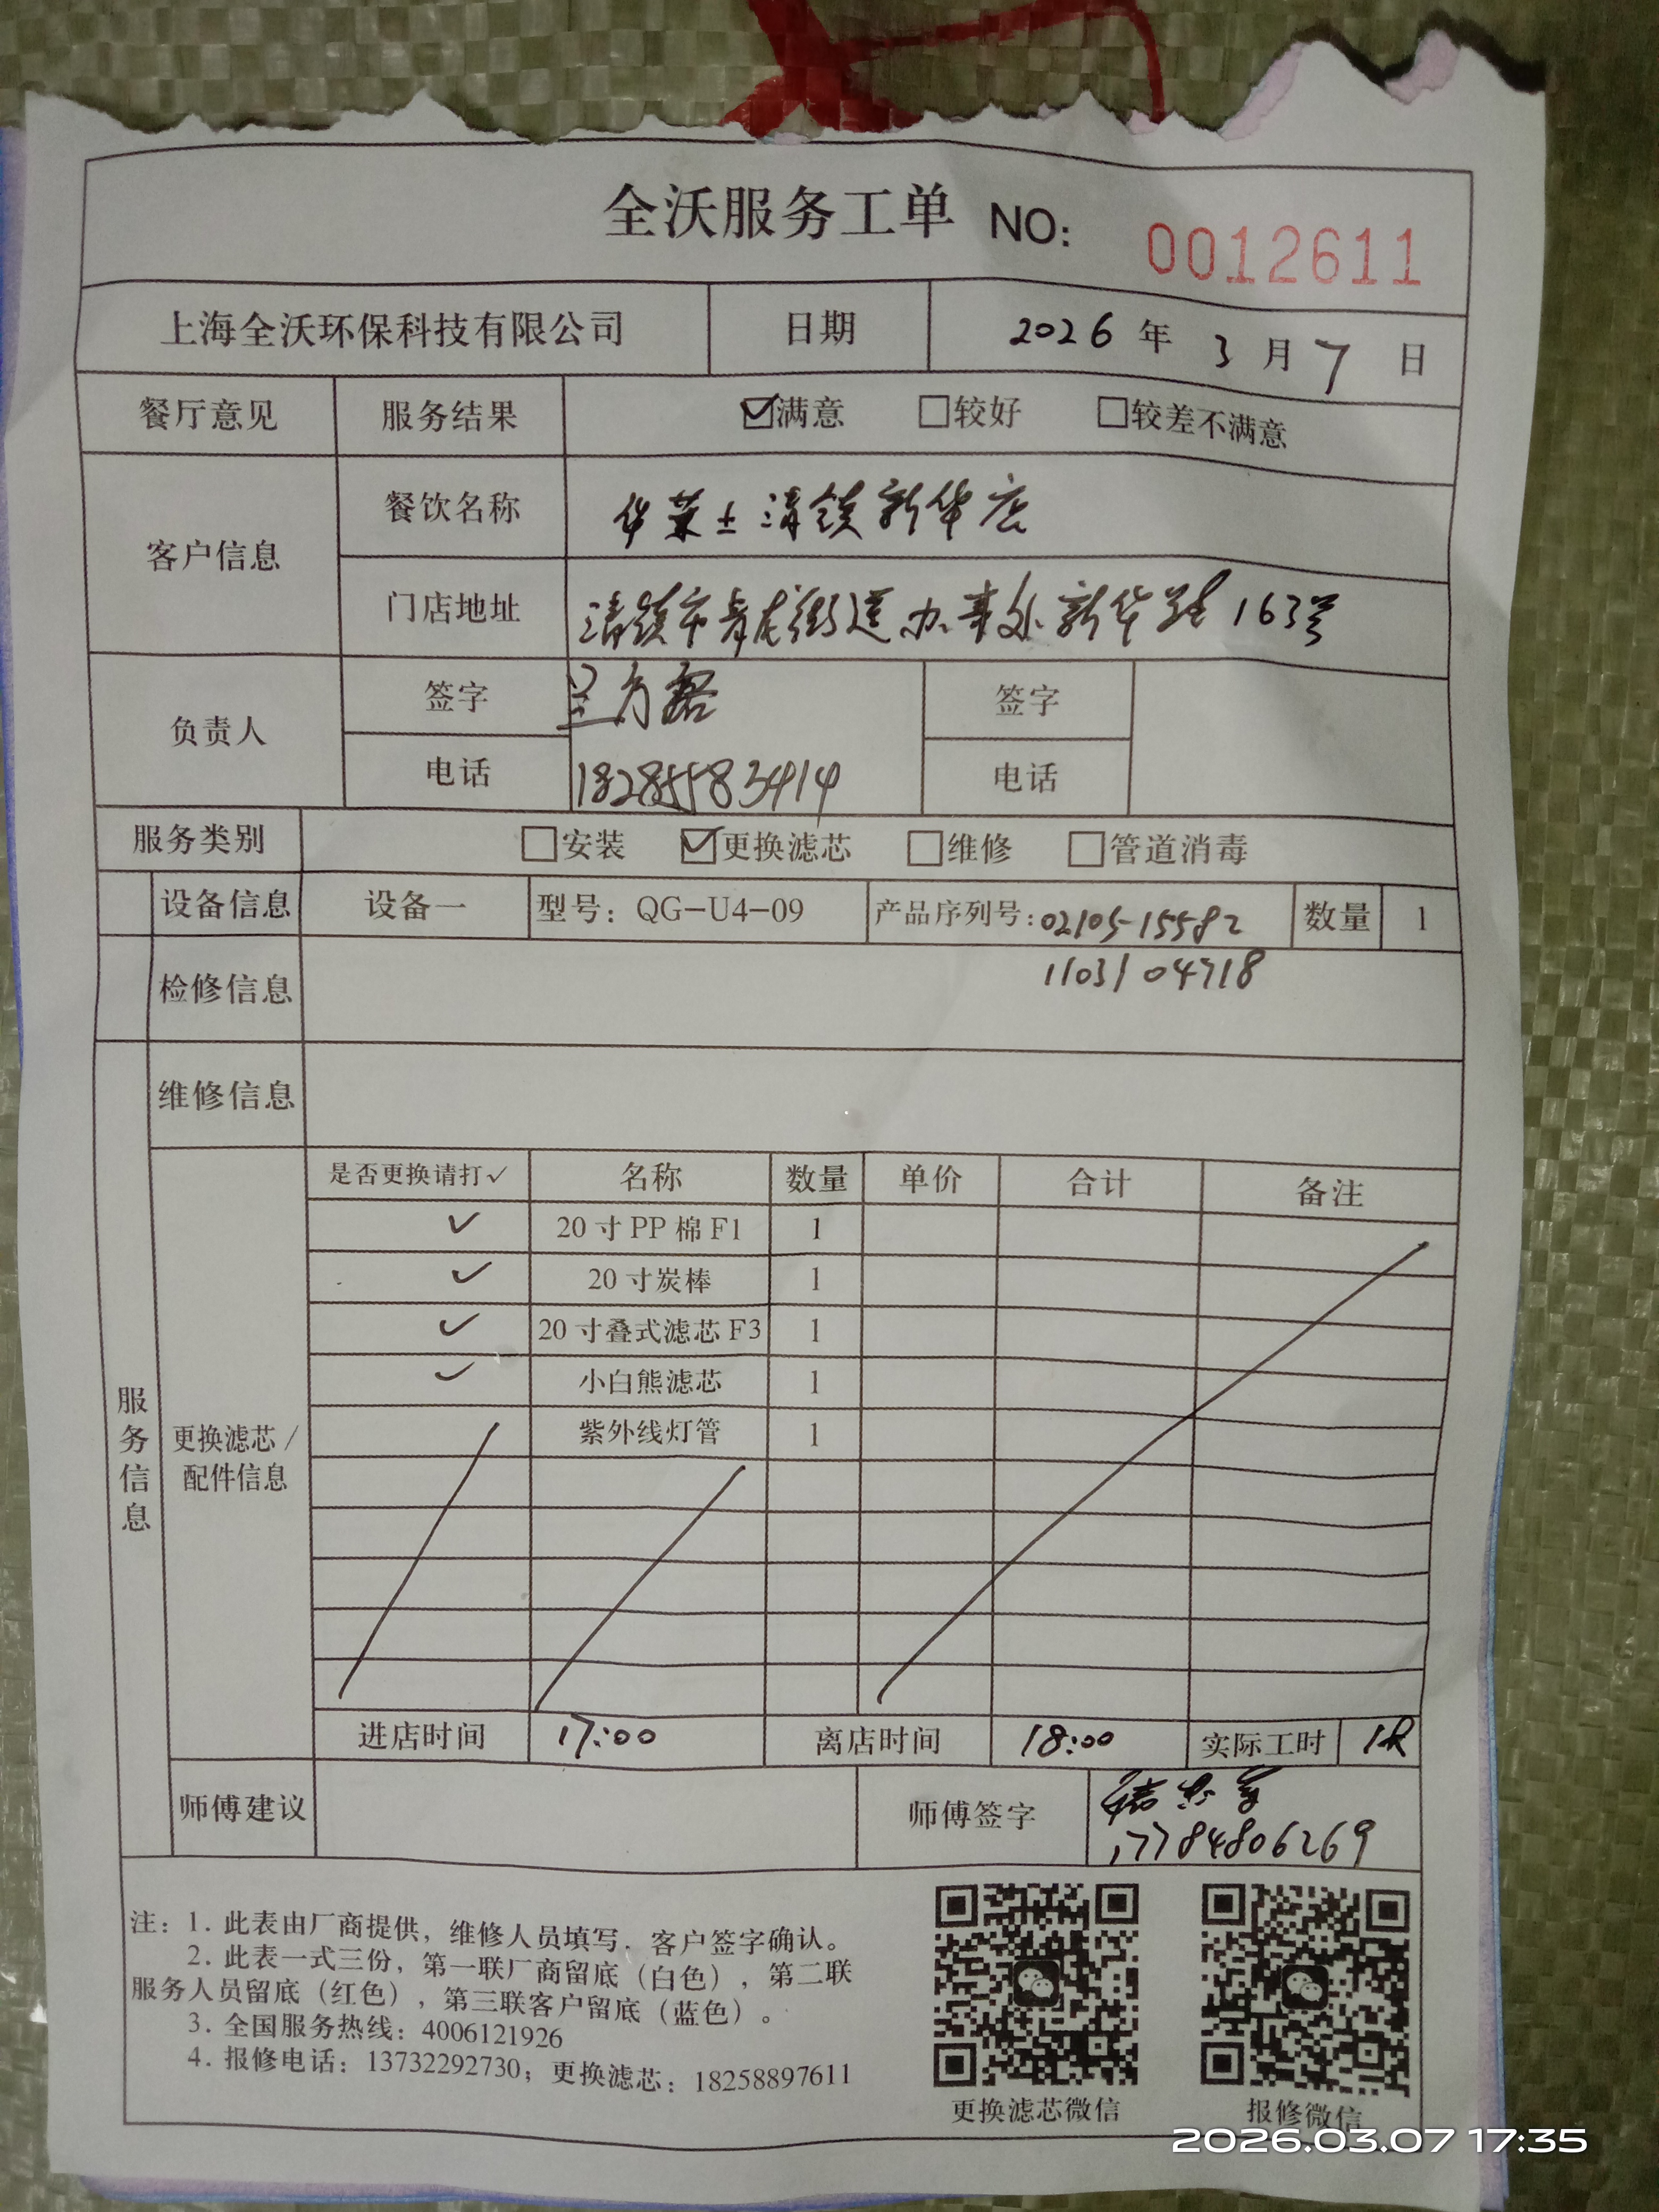 全沃服务工单 NO: 0012611
上海全沃环保科技有限公司 日期 2026 年 3 月 7 日
餐厅意见 服务结果 ☑满意 □较好 □较差不满意
客户信息 餐饮名称 华莱士清镇新华店
门店地址 清镇市青龙街道办事处新华路163号
负责人 签字 兰方 签字
电话 18285583414 电话
服务类别 □安装 ☑更换滤芯 □维修 □管道消毒
设备信息 设备一 型号：QG-U4-09 产品序列号：02105-15582 数量 1
检修信息 1103104718
维修信息
服务信息
更换滤芯/
配件信息
是否更换请打✓ 名称 数量 单价 合计 备注
✓ 20寸PP棉F1 1
✓ 20寸炭棒 1
✓ 20寸叠式滤芯F3 1
✓ 小白熊滤芯 1
紫外线灯管 1
进店时间 17:00 离店时间 18:00 实际工时 1h
师傅建议 师傅签字
17784806269
注：1. 此表由厂商提供，维修人员填写，客户签字确认。
2. 此表一式三份，第一联厂商留底（白色），第二联
服务人员留底（红色），第三联客户留底（蓝色）。
3. 全国服务热线：4006121926
4. 报修电话：13732292730；更换滤芯：18258897611
更换滤芯微信 报修微信
2026.03.07 17:35